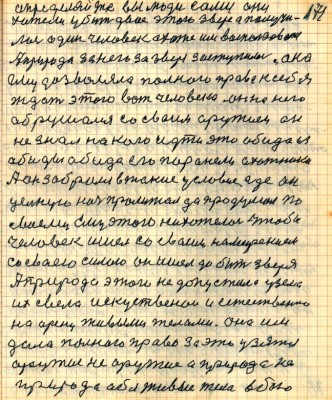 определяй же вы люди сами они 171
хотели убить двое этого зверя а получи
лося один человек охоте им воспользовать
А природа за него за зверя заступился. она
ему дозволяла полного права к себе
ждать этого вот человека. он на него
обрушался со своим оружием он
не знал на кого идти это обида из
обиды обида его поранели охотника
А он забрался в такие условие где он
целую ночь пролежал да продумал по
своему ему этого не хотелося чтобы
человек шел со своим намерением
со своего силою он шел добыть зверя
А природа этого не допустила узела
их свела искуственое и естественно
на арену живыми телами. она им
дала полного права за это узятся
оружие не оружие а природа на
природа оба живые тела в бою